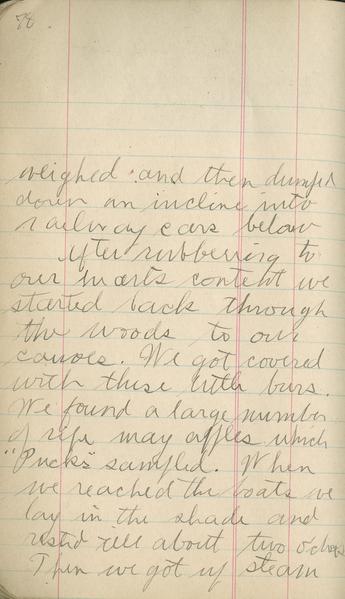 78.
weighed and then dumped
down an incline into
railway cars below
After rubbering to
our hearts content we
started back through
the woods to our
canoes. We got covered
with these little burs.
We found a large number
of ripe may apples which
"Pucks" sampled. When
we reached the boats we
lay in the shade and
rested till about two o'clock
Then we got up steam